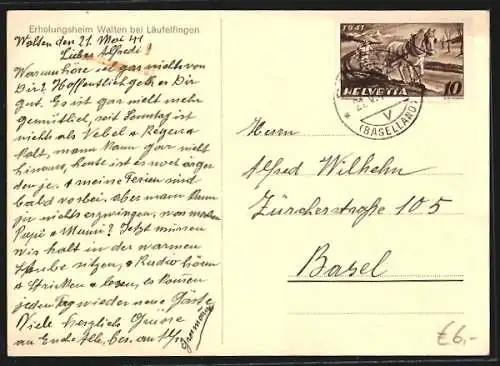 Erholungsheim Walten bei Läufelfingen
Walten den 21. Mai 41
Lieber Alfredi!
Warum höre ich gar nichts von
Dir? Hoffentlich geht es Dir
gut. Es ist gar nicht mehr
gemütlich, seit Sonntag ist
nichts als Nebel & Regen &
kalt, man kann gar nicht
hinaus, heute ist es noch ärger
denn je. & meine Ferien sind
bald vorbei. Aber man kann
ja nichts erzwingen, was machen
Papi & Mammi? Jetzt müssen
wir halt in der warmen
Stube sitzen, & Radio hören
& Stricken & lesen, es kommen
jeden Tag wieder neue Gäste
Viele herzliche Grüsse
an Euch Alle, bes. an
Grosmami
1941
HELVETIA 10
(BASELLAND)
Herrn
Alfred Wilhelm
Zürcherstraße 105
Basel
£6,-